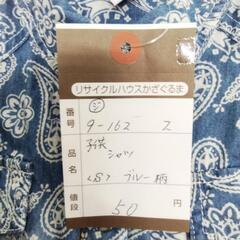 リサイクルハウスかざぐるま
ジ
番号 9-162 2
品名 子供 シャツ
<S> ブルー柄
値段 50 円